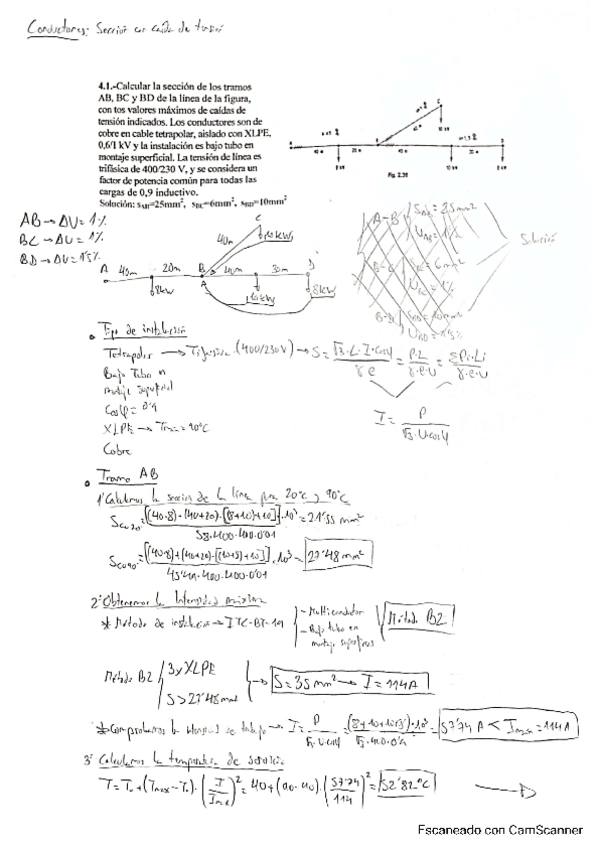 Conductores: Sección con caída de tensión
4.1.-Calcular la sección de los tramos
AB, BC y BD de la línea de la figura,
con tos valores máximos de caídas de
tensión indicados. Los conductores son de
cobre en cable tetrapolar, aislado con XLPE,
0,6/1 kV y la instalación es bajo tubo en
montaje superficial. La tensión de línea es
trifásica de 400/230 V, y se considera un
factor de potencia común para todas las
cargas de 0,9 inductivo.
Solución: sAB=25mm², sBC=6mm², sBD=10mm²
Fig. 2.31
AB → ΔU = 1%
BC → ΔU = 1%
BD → ΔU = 1'5%
A 40m 20m B 20m 30m D
40m C 10kW
8kW 10kW 8kW
A-B SAB = 25mm²
UAB = 1%
B-C SBC = 6mm²
U = 1%
UBD = 1'5%
Solución
Tipo de instalación
Tetrapolar → Trifásica (400/230V) → S = √3·L·I·cosφ / γ·e = P·L / γ·e·U = ΣPi·Li / γ·e·U
Bajo tubo en
montaje superficial
Cosφ = 0'9
XLPE → Tmax = 90°C
Cobre
I = P / √3·U·cosφ
Tramo AB
1º Calculamos la sección de la línea para 20°C y 90°C
SCu20 = ((40·8)+(40+20)·[(8+10)+10])·10³ / 58·400·400·0'01 = 21'55 mm²
SCu90 = ((40·8)+(40+20)·[(10+8)+10])·10³ / 45'49·400·400·0'01 = 27'48 mm²
2º Obtenemos la Intensidad máxima
* Método de instalación → ITC-BT-19 - Multiconductor
- Bajo tubo en
montaje superficial
Método B2
Método B2 3xXLPE
S > 27'48 mm²
→ S = 35 mm² → I = 114A
* Comprobamos la intensidad de trabajo → I = P / √3·U·cosφ = (8+10+10+8)·10³ / √3·400·0'9 = 57'74 A < Imax = 114A
3º Calculamos la temperatura de servicio
T = To + (Tmax - To)·(I / Imax)² = 40 + (90-40)·(57'74 / 114)² = 52'82°C
Escaneado con CamScanner